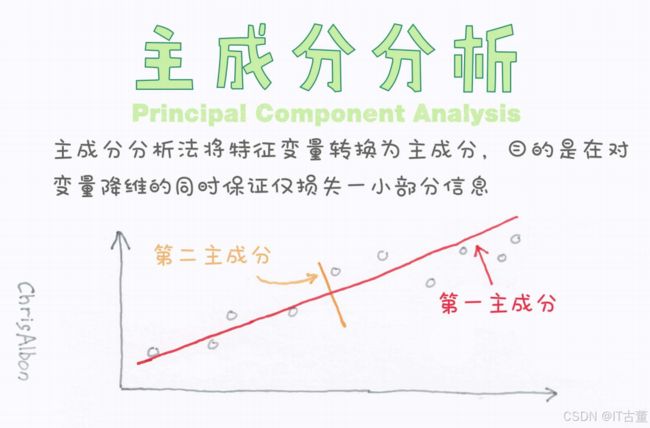 主成分分析
Principal Component Analysis
主成分分析法将特征变量转换为主成分，目的是在对
变量降维的同时保证仅损失一小部分信息
第二主成分
第一主成分
ChrisAlbon
CSDN @IT古董